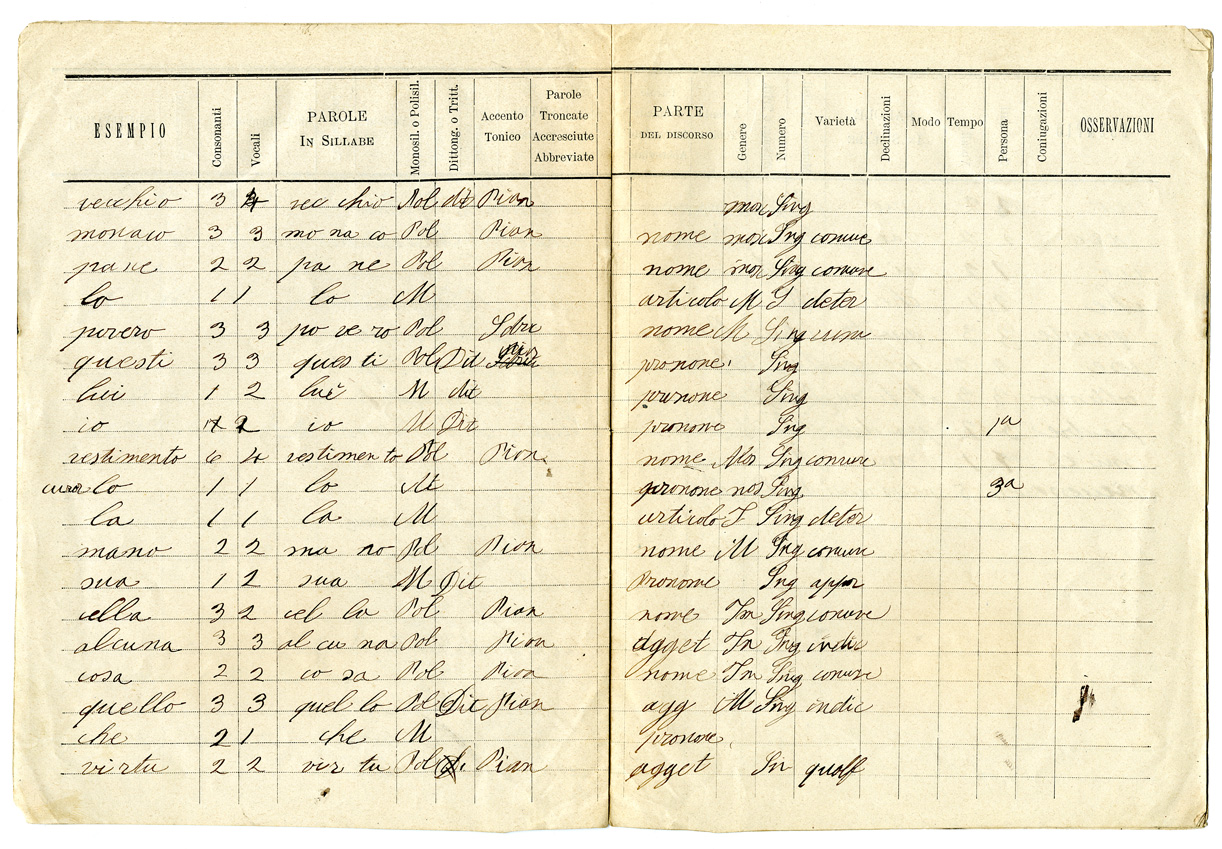 ESEMPIO Consonanti Vocali PAROLE IN SILLABE Monosil. o Polisil. Dittong. o Tritt. Accento Tonico Parole Troncate Accresciute Abbreviate PARTE DEL DISCORSO Genere Numero Varietà Declinazioni Modo Tempo Persona Coniugazioni OSSERVAZIONI
vecchio 3 vec chio Pol dit Pian Sing
monaco 3 3 mo na co Pol Pian nome Sing comune
pane 2 2 pa ne Pol Pian nome Sing comune
lo 1 1 lo M articolo M S deter
povero 3 3 po ve ro Pol Sdru nome M Sing
questi 3 3 ques ti Pol Dit pronome Sing
lui 1 2 lui M dit pronome Sing
io io M Dit pronome Sing 1a
vestimento 6 4 vestimen to Pol Pian nome Mas Sing comune
lo 1 1 lo M pronome Sing 3a
la 1 1 la M articolo F Sing deter
mano 2 2 ma no Pol Pian nome M Sing comune
sua 1 2 sua M Dit Pronome Sing
cella 3 2 cel la Pol Pian nome Sing comune
alcuna 3 3 al cu na Pol Pian agget Sing indic
cosa 2 2 co sa Pol Pian nome Sing comune
quello 3 3 quel lo Pol Dit Pian agg M Sing indic
che 2 1 che M pronome
virtu 2 2 vir tu Pol Pian agget Sin